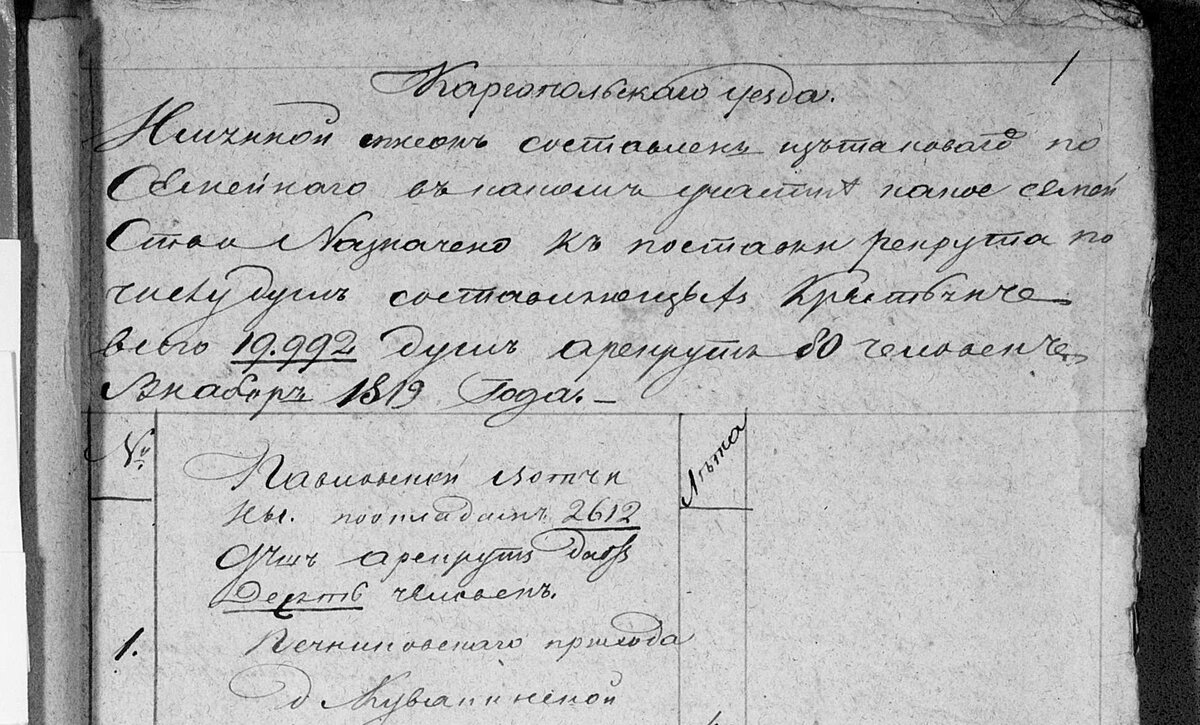 1
Каргопольскаго уезда.
Имянной списокъ составленъ изътаковаго по
Семейнаго въ какомъ участкѣ какое семей
Ство Назначено къ поставки рекрута по
числу душъ составляющихъ Крестьянъ
всего 19.992 душъ арекрутъ 80 человекъ
Внаборъ 1819 Года. —
№
Лѣта
Павловской вотчи
ны. поокладомъ 2612
душъ арекрутъ
Десять человекъ.
1.
Печниковскаго прихода
д